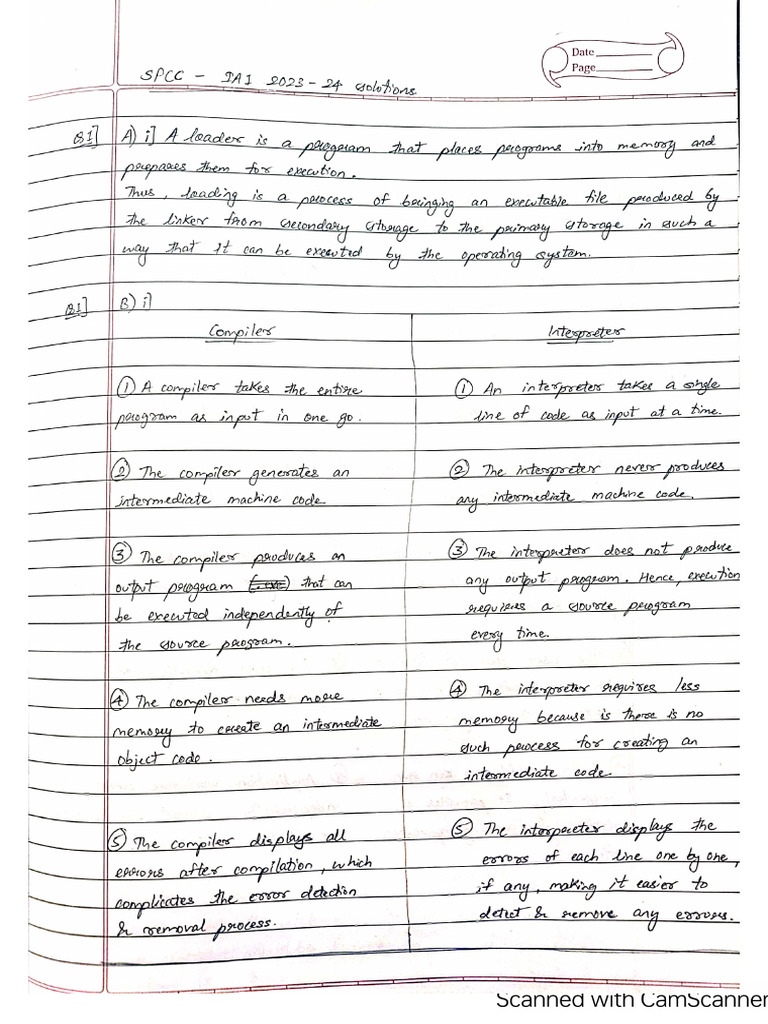 Date
Page
SPCC - IA1 2023-24 solutions
Q.1] A) i] A loader is a program that places programs into memory and
prepares them for execution.
Thus, loading is a process of bringing an executable file produced by
the linker from secondary storage to the primary storage in such a
way that it can be executed by the operating system.
Q.1] B) i]
Compiler
① A compiler takes the entire
program as input in one go.
② The compiler generates an
intermediate machine code.
③ The compiler produces an
output program (.exe) that can
be executed independently of
the source program.
④ The compiler needs more
memory to create an intermediate
object code.
⑤ The compiler displays all
errors after compilation, which
complicates the error detection
& removal process.
Interpreter
① An interpreter takes a single
line of code as input at a time.
② The interpreter never produces
any intermediate machine code.
③ The interpreter does not produce
any output program. Hence, execution
requires a source program
every time.
④ The interpreter requires less
memory because is there is no
such process for creating an
intermediate code.
⑤ The interpreter displays the
errors of each line one by one,
if any, making it easier to
detect & remove any errors.
Scanned with CamScanner